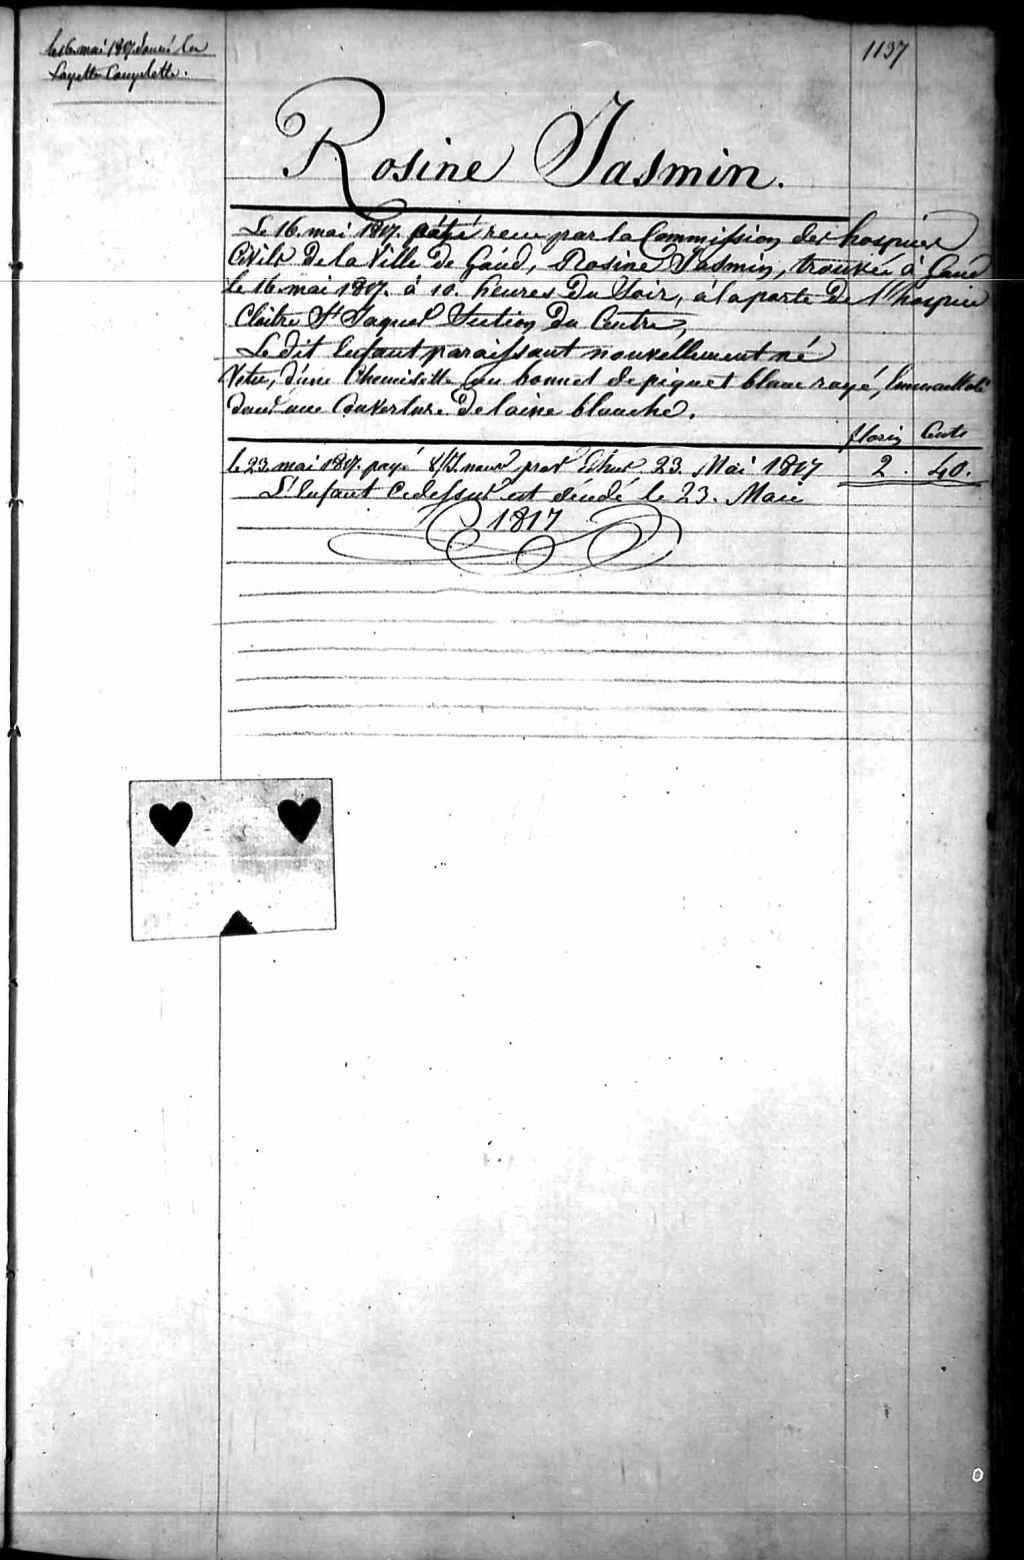 le 16 mai 1817 donné la
Layette Complette.
1137
Rosine Jasmin.
Le 16 mai 1817. été recu par la Commission des hospices
Civils de la Ville de Gand, Rosine Jasmin, trouvée à Gand
le 16 mai 1817. à 10. heures du Soir, à la porte de l'hospice
Cloitre St Jaques Section du Centre,
Le dit Enfant paraissant nouvellement né
Vetu, d'une Chemisette, un bonnet de piquet blanc rayé, Emmailloté
dans une Couverture de laine blanche.
florins Cents
le 23 mai 1817. payé 23 Mai 1817 2. 40.
L'Enfant Cidessus est décédé le 23. Mai
1817